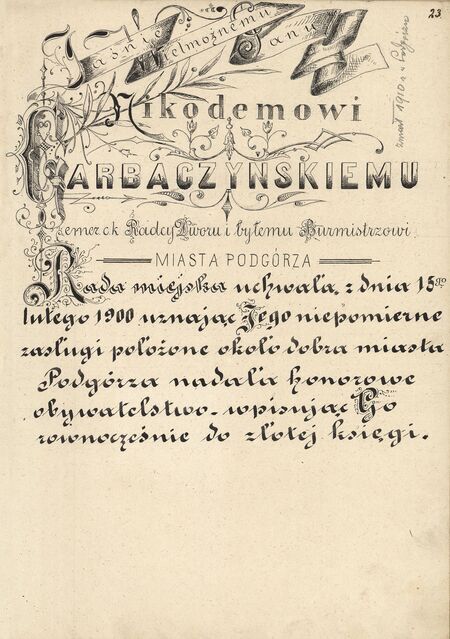 23
Jaśnie Wielmożnemu Panu
Nikodemowi
GARBACZYŃSKIEMU
emer. c k Radcy Dworu i byłemu Burmistrzowi
MIASTA PODGÓRZA
Rada miejska uchwałą z dnia 15go
lutego 1900 uznając Jego niepomierne
zasługi położone około dobra miasta
Podgórza nadała honorowe
obywatelstwo - wpisując Go
równocześnie do złotej księgi.
zmarł 1910 r. w